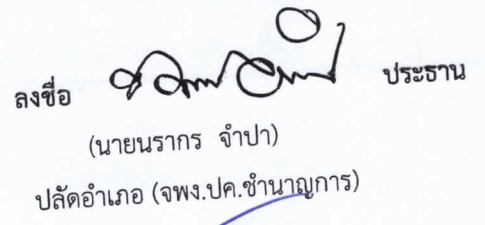 ลงชื่อ ประธาน
(นายนรากร จำปา)
ปลัดอำเภอ (จพง.ปค.ชำนาญการ)